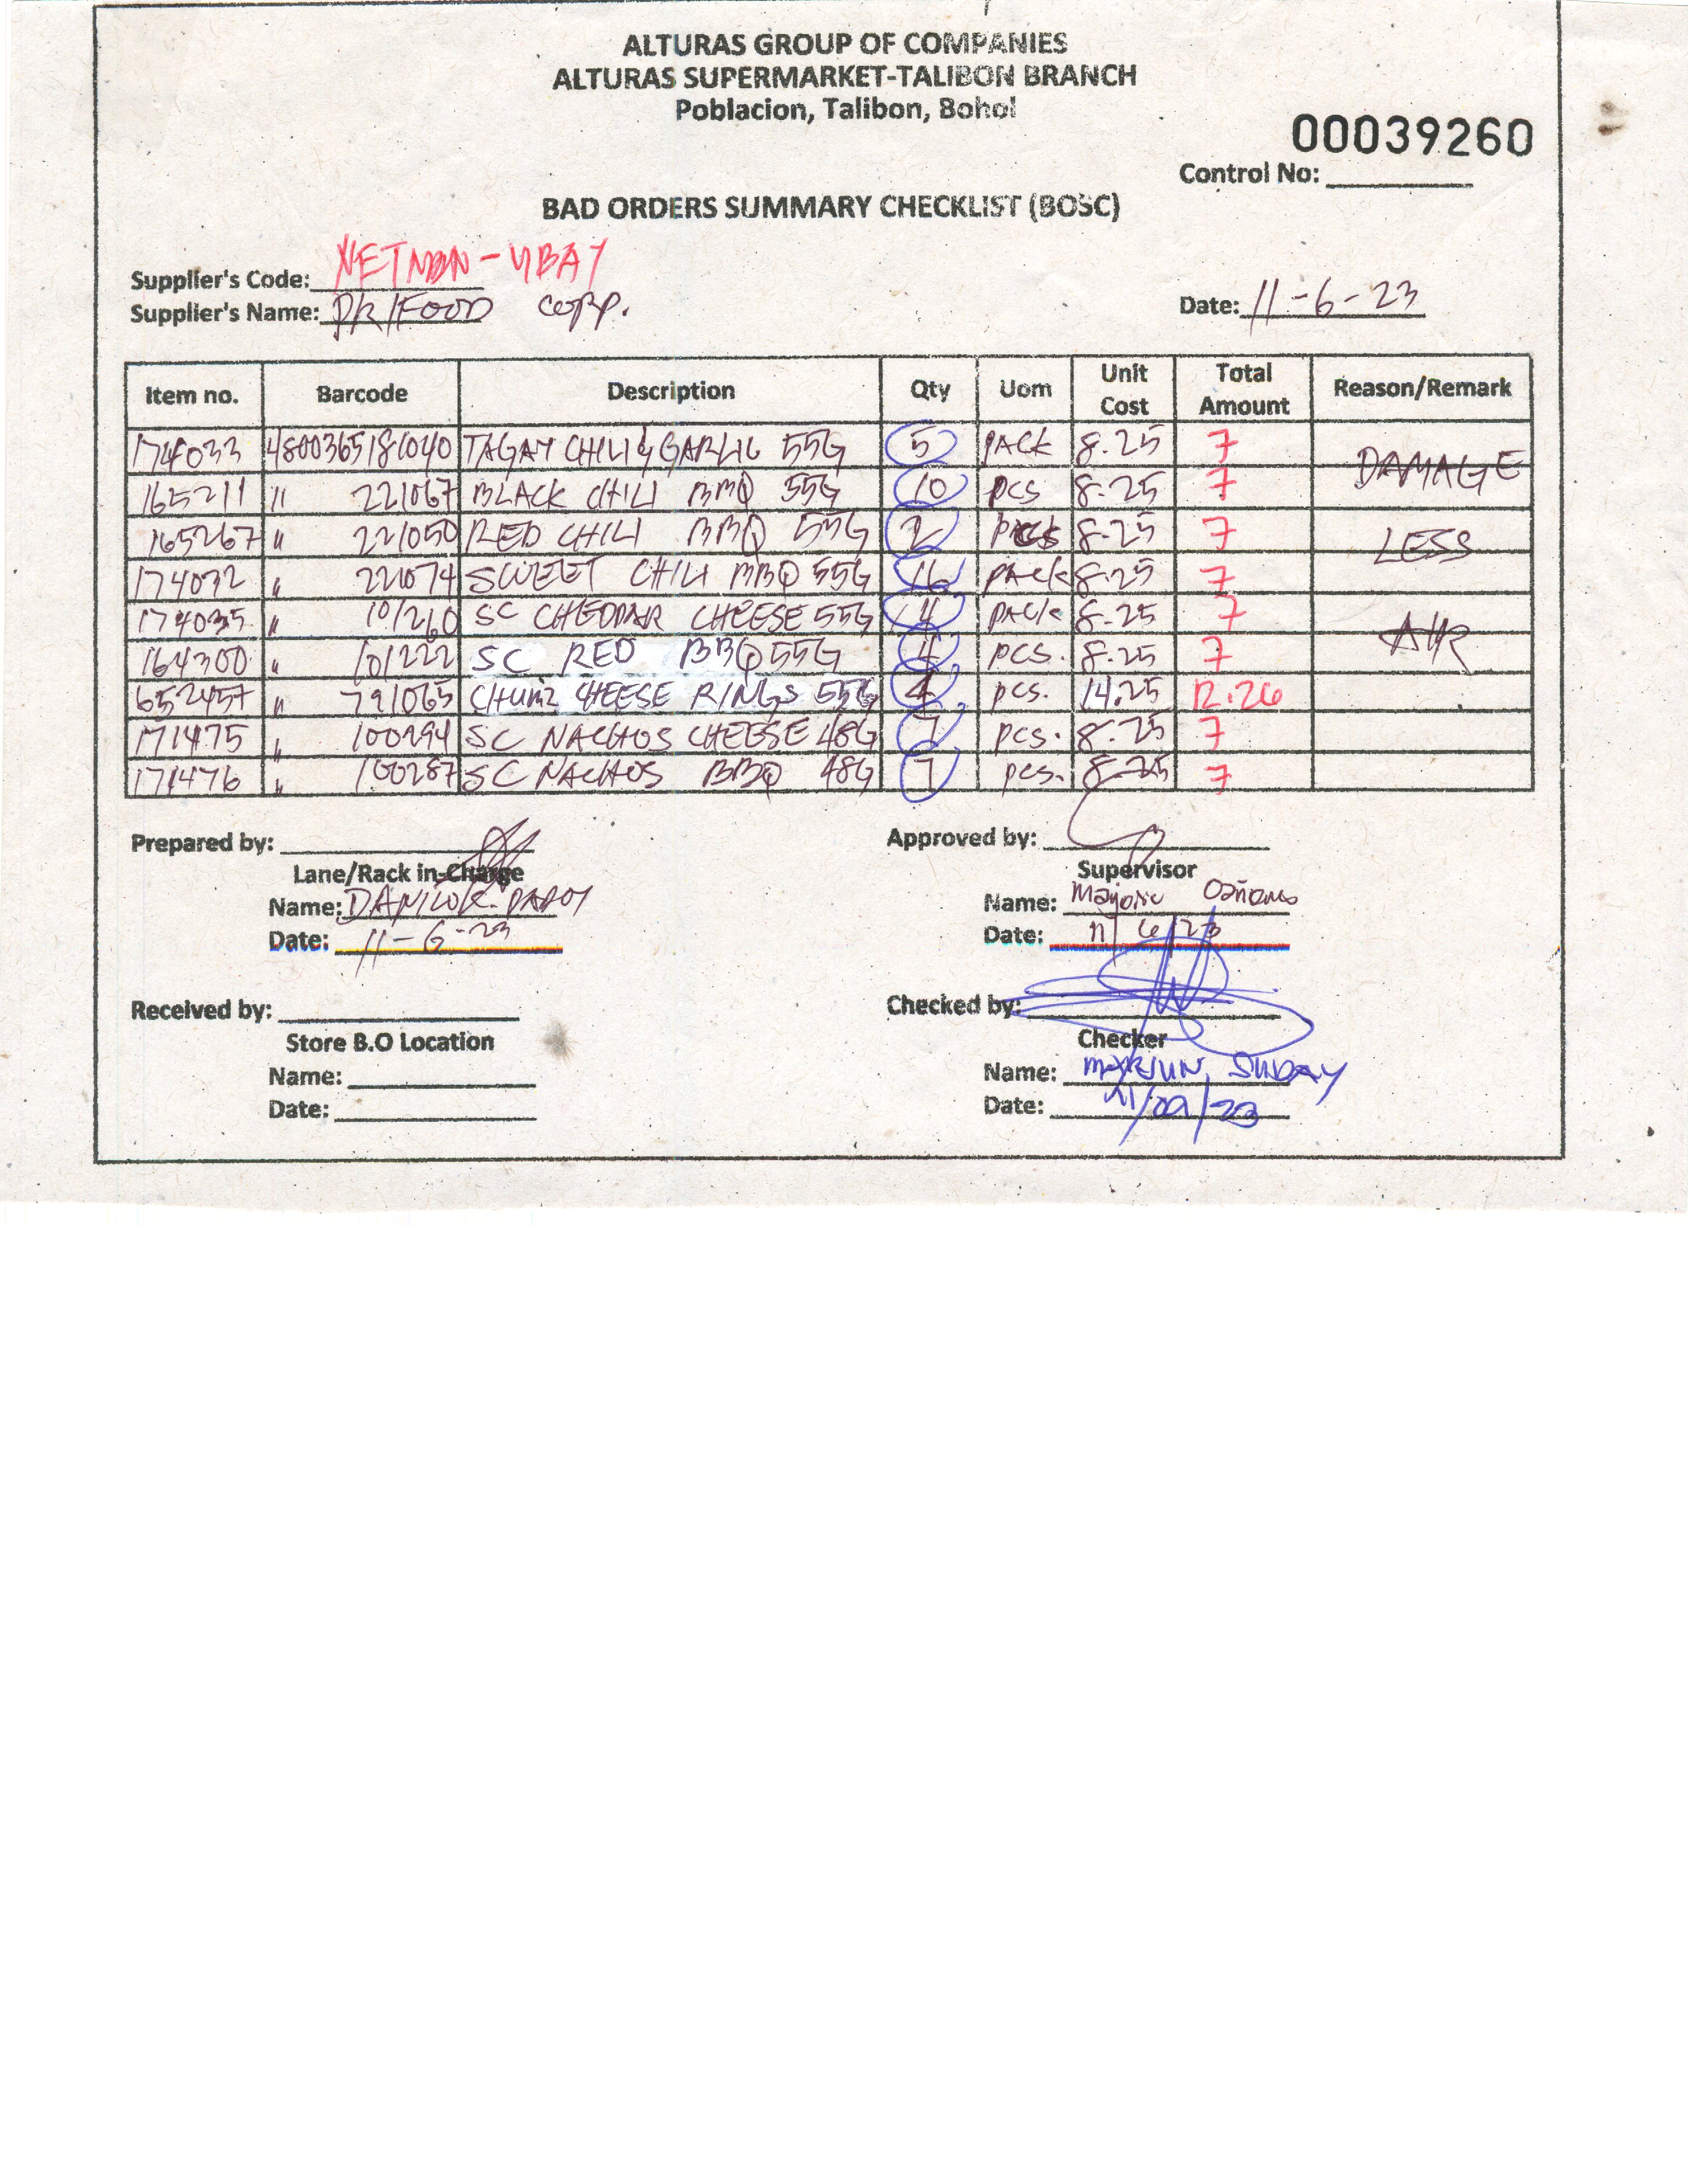 ALTURAS GROUP OF COMPANIES
ALTURAS SUPERMARKET-TALIBON BRANCH
Poblacion, Talibon, Bohol
00039260
Control No:
BAD ORDERS SUMMARY CHECKLIST (BOSC)
Supplier's Code: NETMAN-UBAY
Supplier's Name: PRIFOOD CORP. Date: 11-6-23
Item no. Barcode Description Qty Uom Unit Cost Total Amount Reason/Remark
174033 4800365181040 TAGAY CHILI & GARLIC 55G 5 PACK 8.25 7 DAMAGE
165211 " 221067 BLACK CHILI BBQ 55G 10 PCS 8.25 7
165267 " 221050 RED CHILI BBQ 55G 2 8.25 7 LESS
174032 " 221074 SWEET CHILI BBQ 55G 16 PACK 8.25 7
174035 " 101260 SC CHEDDAR CHEESE 55G 4 PACK 8.25 7 AIR
164300 " 101222 SC RED BBQ 55G 4 PCS. 8.25 7
652457 " 791065 CHUMZ CHEESE RINGS 55G 4 PCS. 14.25 12.26
171475 " 100294 SC NACHOS CHEESE 48G 7 PCS. 8.25 7
171476 " 100287 SC NACHOS BBQ 48G 7 PCS. 8.25 7
Prepared by: Approved by:
Lane/Rack in-Charge Supervisor
Name: DANILO Name: Marjorie
Date: 11-6-23 Date: 11/6/23
Received by: Checked by:
Store B.O Location Checker
Name: Name: MARJUN SUDAY
Date: Date: 11/09/23